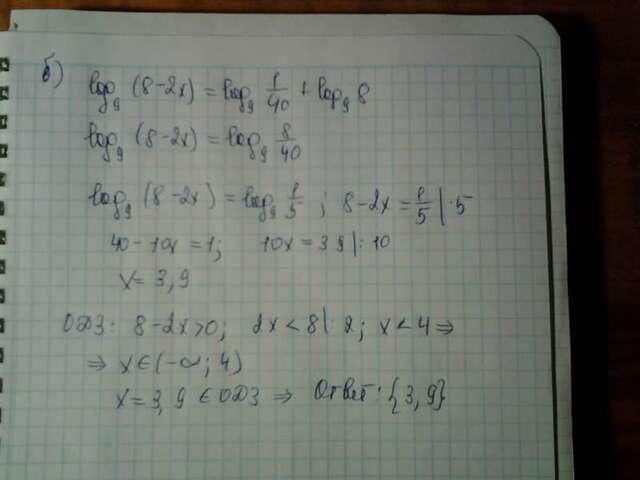 б) log₉ (8-2x) = log₉ 1/40 + log₉ 8
log₉ (8-2x) = log₉ 8/40
log₉ (8-2x) = log₉ 1/5 ; 8-2x = 1/5 |·5
40-10x = 1; 10x = 39 |:10
x = 3,9
ОДЗ: 8-2x>0; 2x < 8 |:2; x < 4 ⇒
⇒ x ∈ (-∞; 4)
x = 3,9 ∈ ОДЗ ⇒ Ответ: {3,9}